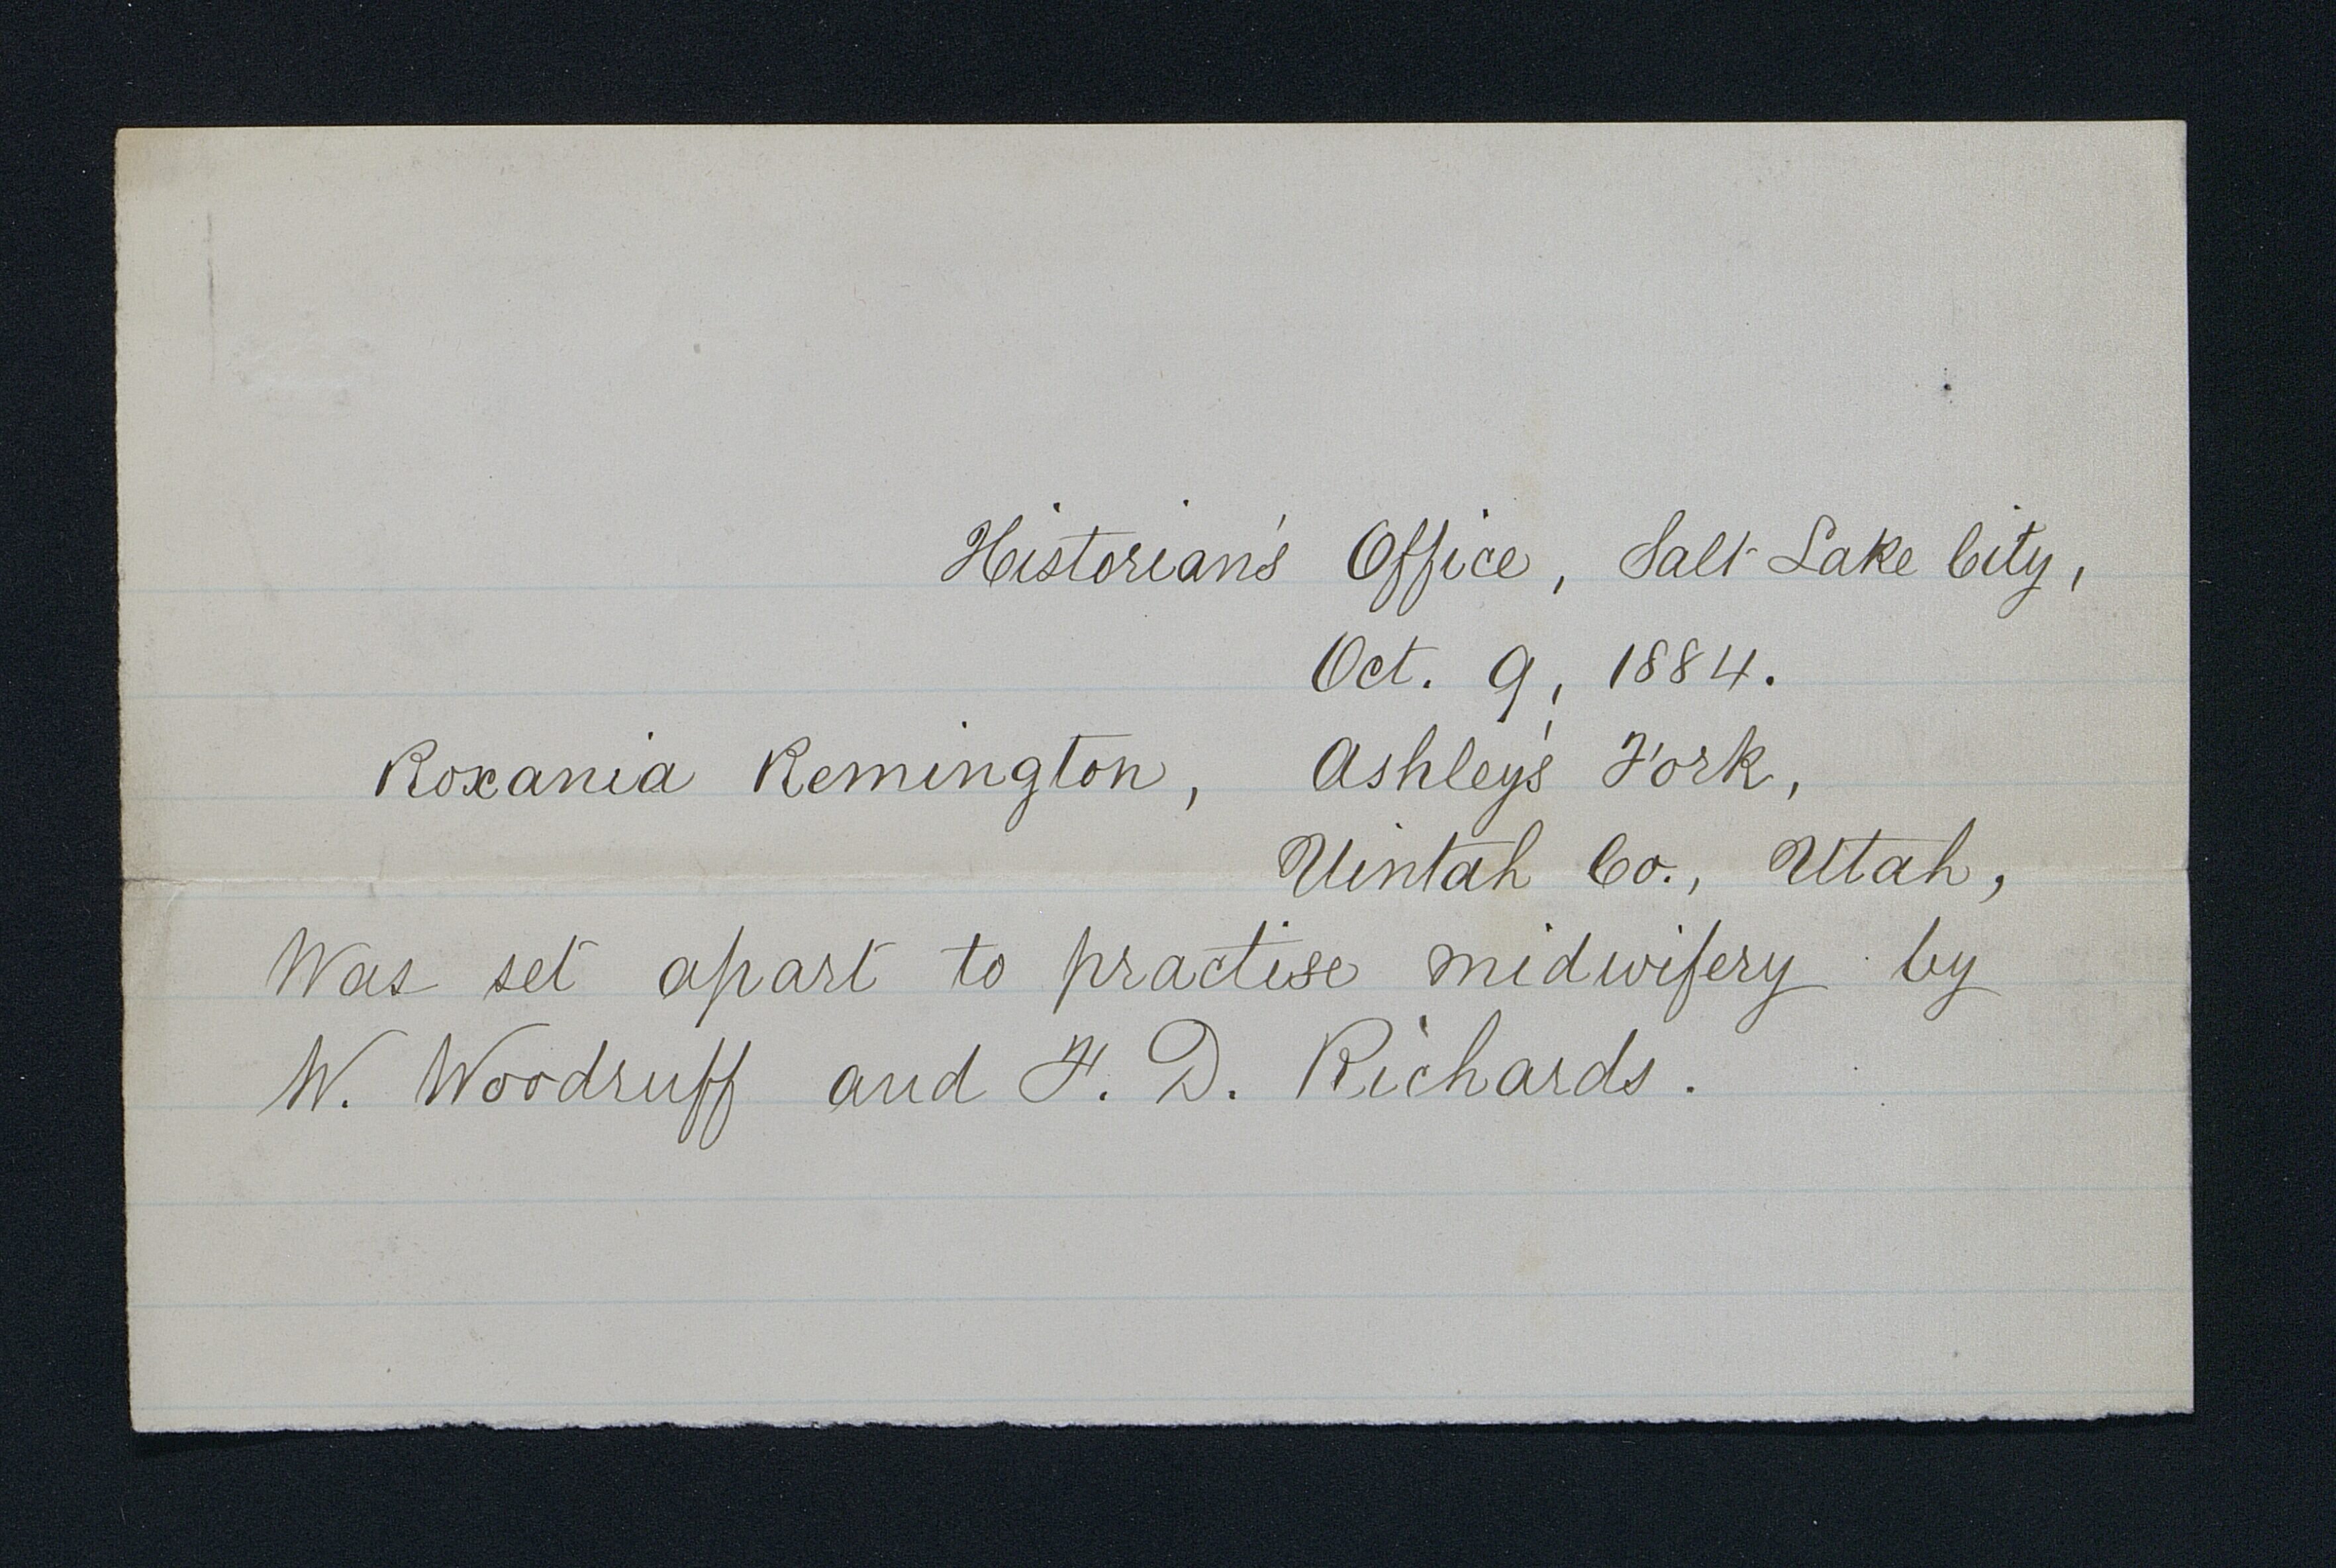 Historian's Office, Salt Lake City,
Oct. 9, 1884.
Roxania Remington, Ashley's Fork,
Uintah Co., Utah,
Was set apart to practise midwifery by
W. Woodruff and F. D. Richards.